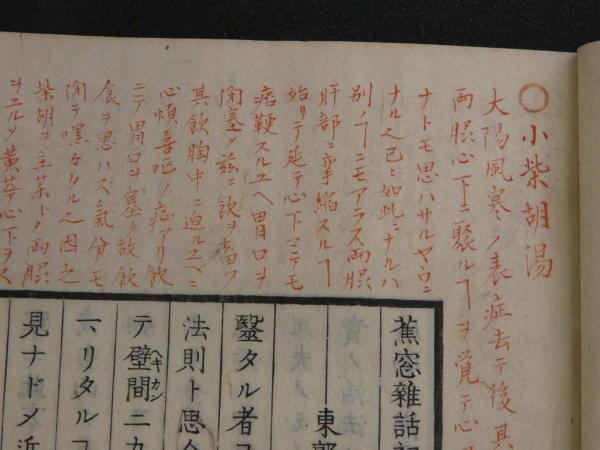 ○小柴胡湯
大陽風寒ノ表症去テ後其
両脇心下ニ聚ルヿヲ覚テ心
ナトモ思ハサルヤウニ
ナル之已ニ如此ニナルハ
別ノヿニモアラス両脇
肝部ニ牽縮スルヿ
始リテ延テ心下マテモ
痞鞕スルユヘ胃口ヲ
閉塞シ茲ニ飲ヲ畜フ
其飲胸中ニ迫ルユヘニ
心煩喜嘔ノ症アリ飲
ニテ胃口ヲ塞ク故飲
食ヲ思ハズ氣分モ
閉テ嘿々タル之因之
柴胡ヲ主薬トシ両脇
ヲユルメ黄芩心下ヲス
蕉窓雑話
東郭
毉タル者
法則ト思
テ壁間ニ九
ヘキカン
ハリタルコ
見ナドメ近